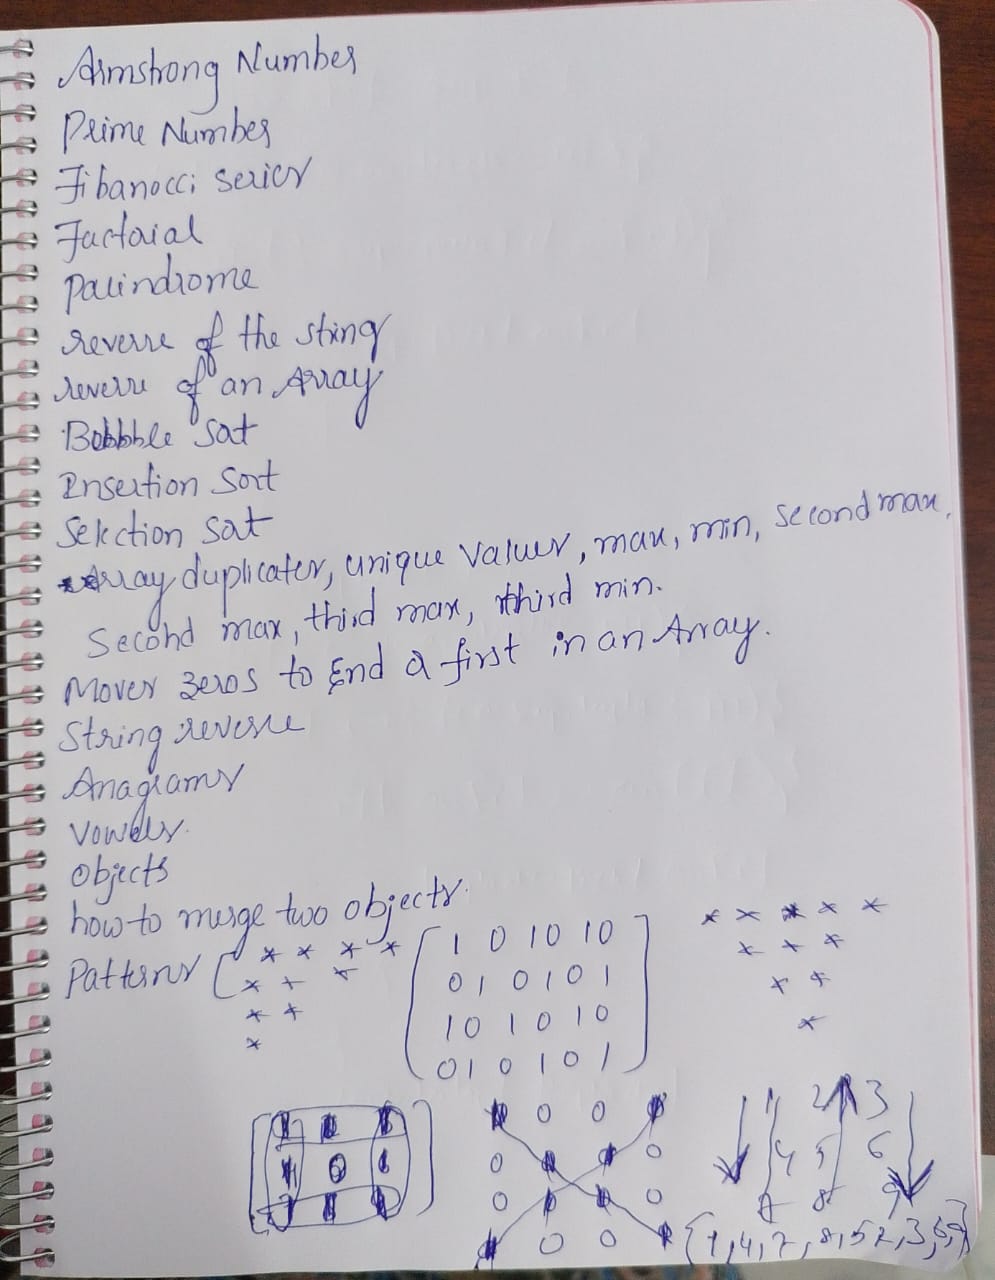 Armstrong Number
Prime Number
Fibanocci series
Factorial
Palindrome
reverse of the string
reverse of an Array
Bobbble sort
Insertion Sort
Selection sort
Array duplicates, unique values, max, min, second max,
Second max, third max, third min.
Moves zeros to End or first in an Array.
String reverse
Anagrams
Vowels.
Objects
how to merge two objects.
Patterns [ * * * * [ 1 0 1 0 1 0 ] * * * * *
* * * 0 1 0 1 0 1 * * *
* * 1 0 1 0 1 0 * *
* 0 1 0 1 0 1 *
1 1 1 1 0 0 1 1 2 3
1 0 1 0 1 1 0 4 5 6
1 1 1 0 1 1 0 7 8 9
1 0 0 1 {1,4,7,8,5,2,3,6,9}